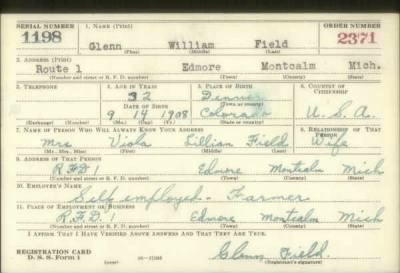 SERIAL NUMBER 1. NAME (Print) ORDER NUMBER
1198 Glenn William Field 2371
(First) (Middle) (Last)
2. ADDRESS (Print)
Route 1 Edmore Montcalm Mich.
(Number and street or R. F. D. number) (Town) (County) (State)
3. TELEPHONE 4. AGE IN YEARS 5. PLACE OF BIRTH 6. COUNTRY OF CITIZENSHIP
32 Denver
DATE OF BIRTH (Town or county)
9 14 1908 Colorado U.S.A.
(Exchange) (Number) (Mo.) (Day) (Yr.) (State or country)
7. NAME OF PERSON WHO WILL ALWAYS KNOW YOUR ADDRESS 8. RELATIONSHIP OF THAT PERSON
Mrs. Viola Lillian Field Wife
(Mr., Mrs., Miss) (First) (Middle) (Last)
9. ADDRESS OF THAT PERSON
R.F.D. 1 Edmore Montcalm Mich
(Number and street or R. F. D. number) (Town) (County) (State)
10. EMPLOYER'S NAME
Self employed - Farmer
11. PLACE OF EMPLOYMENT OR BUSINESS
R.F.D. 1 Edmore Montcalm Mich
(Number and street or R. F. D. number) (Town) (County) (State)
I AFFIRM THAT I HAVE VERIFIED ABOVE ANSWERS AND THAT THEY ARE TRUE.
REGISTRATION CARD
D. S. S. Form 1 Glenn Field.
(Registrant's signature)